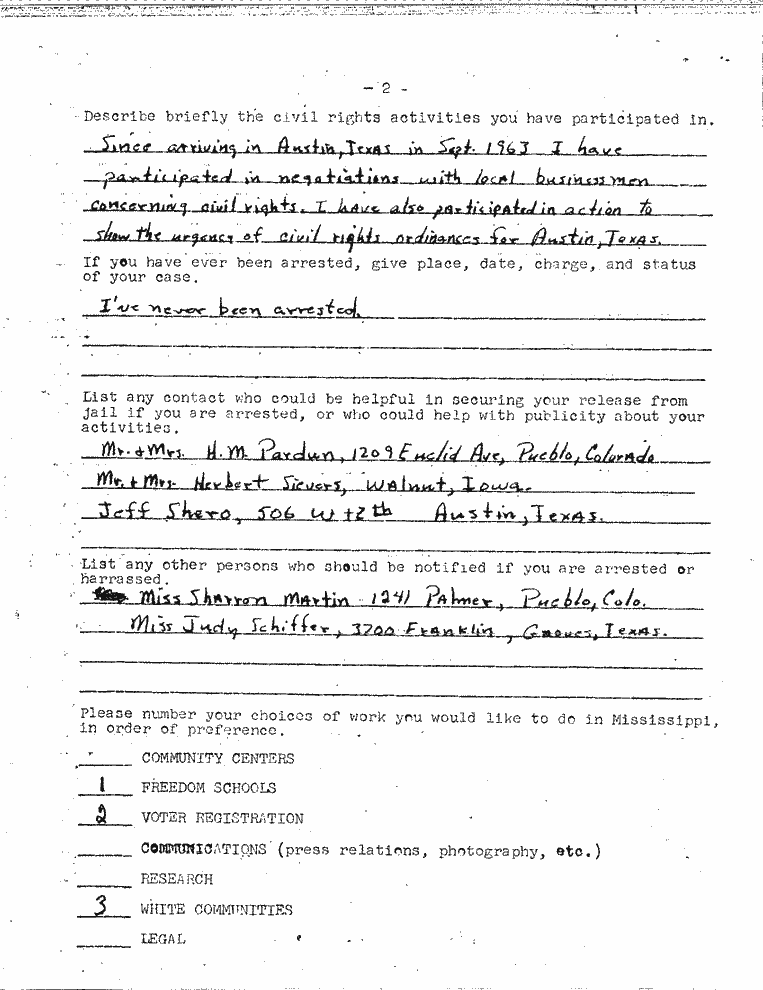 - 2 -
Describe briefly the civil rights activities you have participated in.
Since arriving in Austin, Texas in Sept. 1963 I have
participated in negotiations with local business men
concerning civil rights. I have also participated in action to
show the urgency of civil rights ordinances for Austin, Texas.
If you have ever been arrested, give place, date, charge, and status
of your case.
I've never been arrested.
List any contact who could be helpful in securing your release from
jail if you are arrested, or who could help with publicity about your
activities.
Mr. & Mrs. H.M. Pardun, 1209 Euclid Ave, Pueblo, Colorado
Mr. & Mrs. Herbert Sievers, Walnut, Iowa.
Jeff Shero, 506 W 12th Austin, Texas.
List any other persons who should be notified if you are arrested or
harrassed.
Miss Sharron Martin 1241 Palmer, Pueblo, Colo.
Miss Judy Schiffer, 3700 Franklin, Groves, Texas.
Please number your choices of work you would like to do in Mississippi,
in order of preference.
COMMUNITY CENTERS
1 FREEDOM SCHOOLS
2 VOTER REGISTRATION
COMMUNICATIONS (press relations, photography, etc.)
RESEARCH
3 WHITE COMMUNITIES
LEGAL